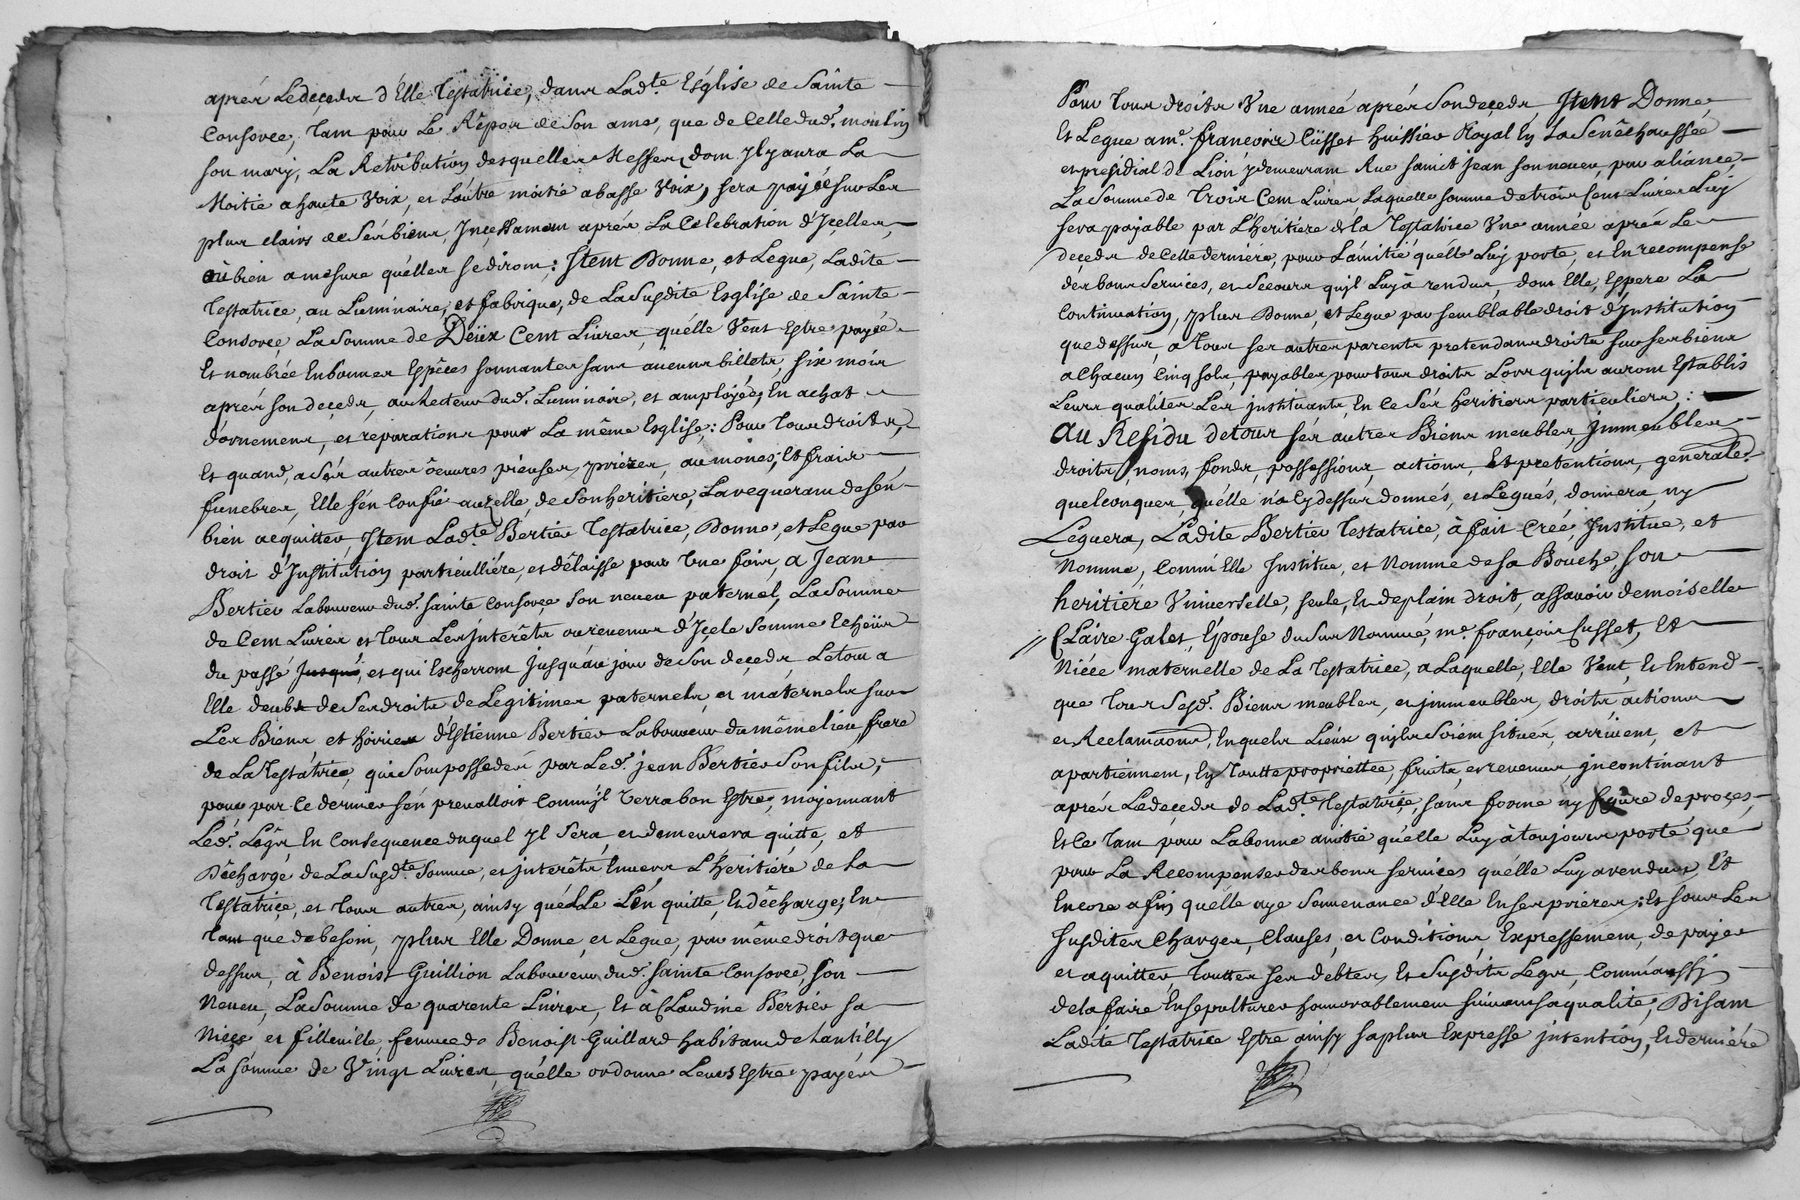 aprés Le deçeds d'Elle Testatrice, dans Ladte. Esglise de Sainte
Consorce, Tam pour Le Répos de Son ame, que de Celle dud. moulin
son mary, La Retribution desquelles Messes, dom Jl y aura La
Moitié a haute Voix, et L'autre moitié a basse Voix, sera payéé sur Les
plus clairs de Sés biens, Jnçessamam aprés La Celebration d'Jçelles,
oú bien a mesure quélles se dirom; Jtem Donne, et Legue, Ladite
Testatrice, au Luminaire, et fabrique, de La Susdite Esglise de Sainte
Consorce La Somme de Deüx Cent Livres qu'élle Veut Estre payéé
Et nombréé En bonnes Espéces sonnantes sans aucuns billets, six mois
aprés son deçeds, au Recteur dud. Luminaire, et amployéés En achat
d'ornemens, et reparations pour La même Esglise; Pour Tous droits,
Et quand, a Sés autres oeuvres pieuses, prieres, aumônes, Et frais
funebres, Elle s'én Confie au zelle, de Son heritiere, La requeram de s'én
bien acquitter, Jtem Ladte. Bertier Testatrice, Donne, et Legue par
droit d'Jnstitution particulliére, et délaisse pour Une fois, a Jean
Bertier Laboureur dud. Sainte Consorce Son neveu paternel, La Somme
de Cem Livres et Tous Les jnterêts ou revenus d'Jçele Somme Echeüs
du passé Jusqué, et qui Escherrom Jusqu'au jour de Son deçeds, Le tou a
Elle deub de Ses droits de Legitimes paternels, et maternels sur
Les Biens et hoirie d'Estienne Bertier Laboureur du même lieu frere
de La Testatrice, qui Som possedés par Led. jean Bertier Son fils,
pour par Ce dernier s'én prevalloir Comm'jl Verra bon Estre, moyennant
Led. Légs, En Consequence duquel Jl Sera, et demeurera quitte, et
Décharge de La Susdte. Somme, et jnterêts Envers L'heritiére de La
Testatrice, et Tous autres, ainsy qu'élle L'én quitte, Et décharge, En
Tant que de besoin, plus Elle Donne, et Legue, par même droit que
dessus, à Benoist Guillion Laboureur dud. Sainte Consorce Son
Neveu, La Somme de quarente Livres, Et à Claudine Bertier sa
Niéçe et filleulle, femme de Benoist Guillard habitam de hantilly
La Somme de Vingt Livres, qu'élle ordonne Leurs Estre payés
Pour Tous droits Vne année aprés Son deçeds Jtem Donne
Et Legue a me. francois Cüsset Huissier Royal En La Senéchaussée
et presidial de Lion y demeuram Rue sainct jean son neveu, par aliance
La Somme de Trois Cem Livres Laquelle somme de trois Cent Livres Luy
sera payable par L'heritiere de la Testatrice Vne année aprés Le
deçeds de Celle derniére, pour L'amitié qu'élle Luy porte, et En recompense
des bons Services, et Secours qu'jl Luy à rendus, dom Elle, Espere La
Continuation, plus Donne, et Legue par semblable droit d'Jnstitution
que dessus, a Tous ses autres parents pretendans droits sur ses biens
a Chacun Cinq sols, payables pour tous droits Lors qu'jls aurom Establis
Leurs qualités Les jnstituants En Ce Sés heritiers particuliers:
Au Residu de tous sés autres Biens meubles, Jmmeubles
droits, noms, fonds, possessions, actions, Et pretentions, generalt.
quelconques, qu'élle n'a Cy dessus donnés, et Legués, donnera, ny
Leguera, Ladite Bertier Testatrice, à fait Créé, Jnstitué, et
Nommé, Comm'Elle Jnstitue, et Nomme de sa Bouche, son
heritiere Vniverselle, seule, Et de plain droit, assavoir demoiselle
Claire Gales, Épouse du Sur Nommé, me. françois Cusset, Et
Niéce maternelle de La Testatrice, a Laquelle, Elle Veut, Et Entend
que Tous Sesd. Biens meubles, et jmmeubles, droits actions
et Reclamaons, En quels Lieux qu'jls Soiem situés, arrivent, et
apartiennem, En Toutte propriettée, fruits, et revenus, jncontinant
aprés Le deçeds de Ladte. Testatriçe, sans forme ny figure de proçes,
Et Ce Tam pour La bonne amitié qu'élle Luy à toujours porté que
pour La Recompenser des bons services qu'élle Luy a rendus, Et
Encore afin qu'élle aye Souvenance d'Elle En ses priéres; Et sous Les
Susdites Charges, Clauses, et Conditions Expressemem, de payer
et aquitter, Touttes ses debtes, Et Susdits Legs, Comm'aussy
de la faire Ensepulturer honnorablemem suivam sa qualité, Disam
Ladite Testatrice Estre ainsy sa plus Expresse jntention, Et derniére